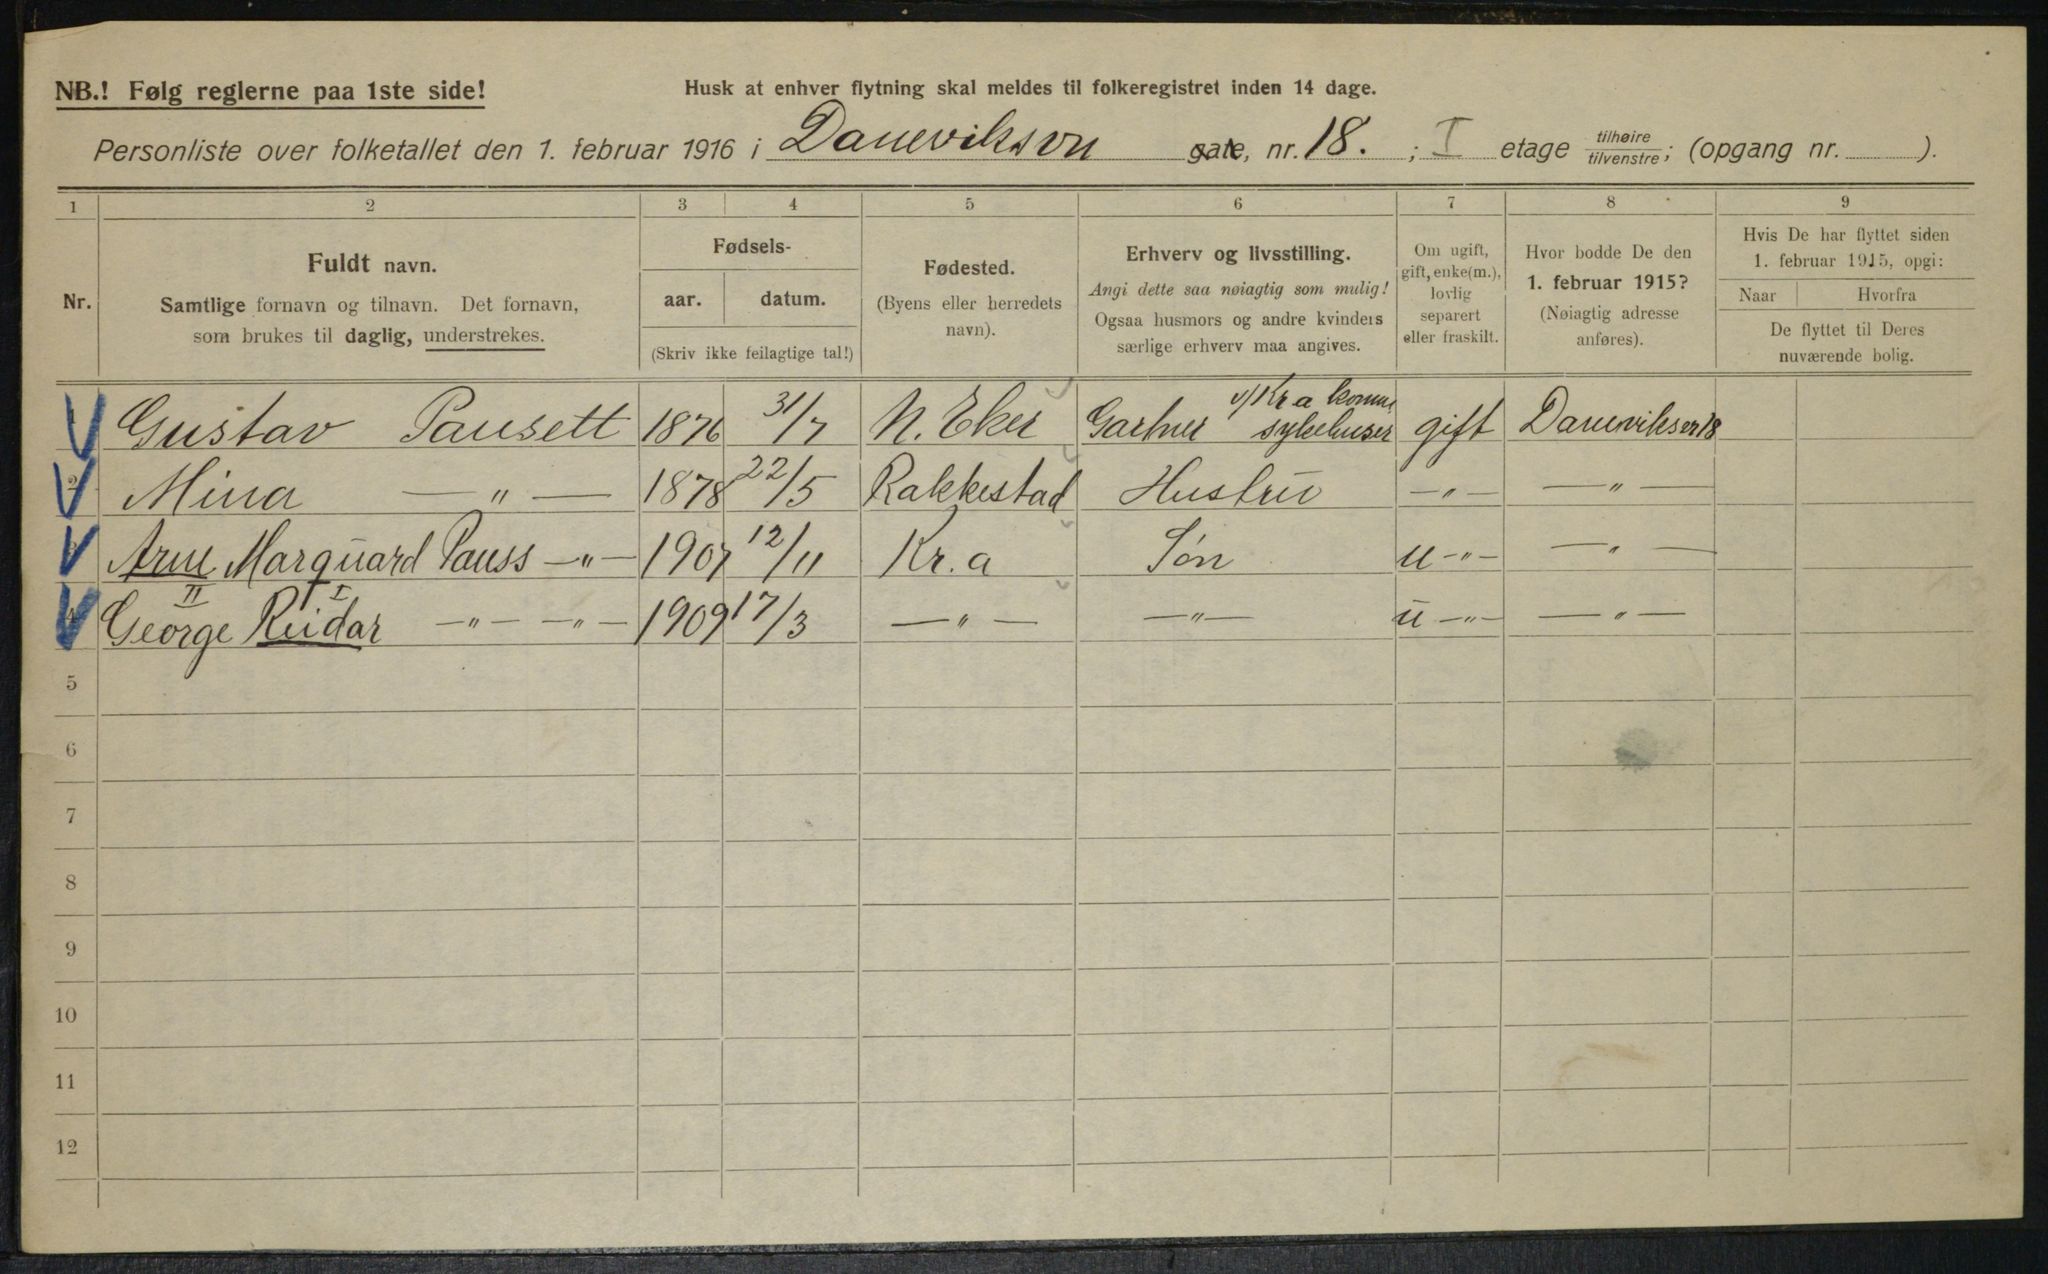 NB.! Følg reglerne paa 1ste side!
Husk at enhver flytning skal meldes til folkeregistret inden 14 dage.
Personliste over folketallet den 1. februar 1916 i Daneviksvn gate, nr. 18. ; I etage tilhøire / tilvenstre; (opgang nr. ).
1 2 3 4 5 6 7 8 9
Nr.
Fuldt navn.
Samtlige fornavn og tilnavn. Det fornavn,
som brukes til daglig, understrekes.
Fødsels-
aar. datum.
(Skriv ikke feilagtige tal!)
Fødested.
(Byens eller herredets
navn).
Erhverv og livsstilling.
Angi dette saa nøiagtig som mulig!
Ogsaa husmors og andre kvinders
særlige erhverv maa angives.
Om ugift,
gift, enke(m.),
lovlig
separert
eller fraskilt.
Hvor bodde De den
1. februar 1915?
(Nøiagtig adresse
anføres).
Hvis De har flyttet siden
1. februar 1915, opgi:
Naar Hvorfra
De flyttet til Deres
nuværende bolig.
1 Gustav Pausett 1876 31/7 N. Eker Gartner v/Kr.a komm. sykehuser gift Daneviksvn 18
2 Mina —"— 1878 22/5 Rakkestad Hustru —"— —"—
3 Arne Marquard Pauss —"— 1907 12/11 Kr.a Søn u —"— —"—
II I
4 George Reidar —"— —"— 1909 17/3 —"— —"— u —"— —"—
5
6
7
8
9
10
11
12